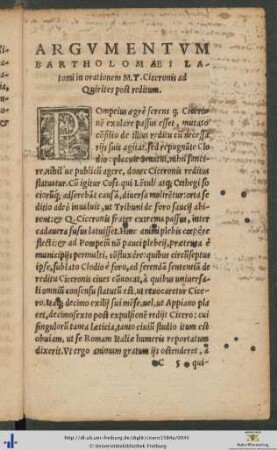 ARGVMENTVM
BARTHOLOMAEI LA-
tomi in orationem M.T. Ciceronis ad
Quirites post reditum.
POmpeius ægrè ferens q, Cicero-
nē exulare passus esset, mutato
cōsilio de illius reditu cū necessa-
rijs suis agitat, sed repugnāte Clo-
dio: placuit senatui, nihil sancire
re, nihil ue publicè agere, donec Ciceronis reditus
statuatur. Cū igitur Coss. qui Lētuli atq; Cethegi so
ciorūq; aduersa diuersa molirētur: orta se
ditio adeò inualuit, ut Tribuni de foro saucij abi-
rent: & Q. Ciceronis frater extrema passus, inter
cadauera fusus latuisset. Hinc animi plebis cœpêre
flecti: & ad Pompeiū nō pauci plebeij, præterea è
municipijs permulti, cōfluxêre: quibus circūseptus
ipse, sublato Clodio è foro, ad ferendā sententiā de
reditu Ciceronis ciues cōuocat, à quibus uniuer-
si omniū consensu statutū est, ut reuocaretur Cice-
ro. Itaq; decimo exilij sui mēse, uel, ut Appiano pla
cet, decimosexto post expulsionē redijt Cicero: cui
singulorū tama lætitia, tanto ciuiū studio itum est
obuiam, ut se Romam Italiæ humeris reportatum
dixerit. Vt ergo animum gratum ijs ostenderet, à
C 5 qui-
http://dl.ub.uni-freiburg.de/diglit/cicero1584a/0045
© Universitätsbibliothek Freiburg
Baden-Württemberg